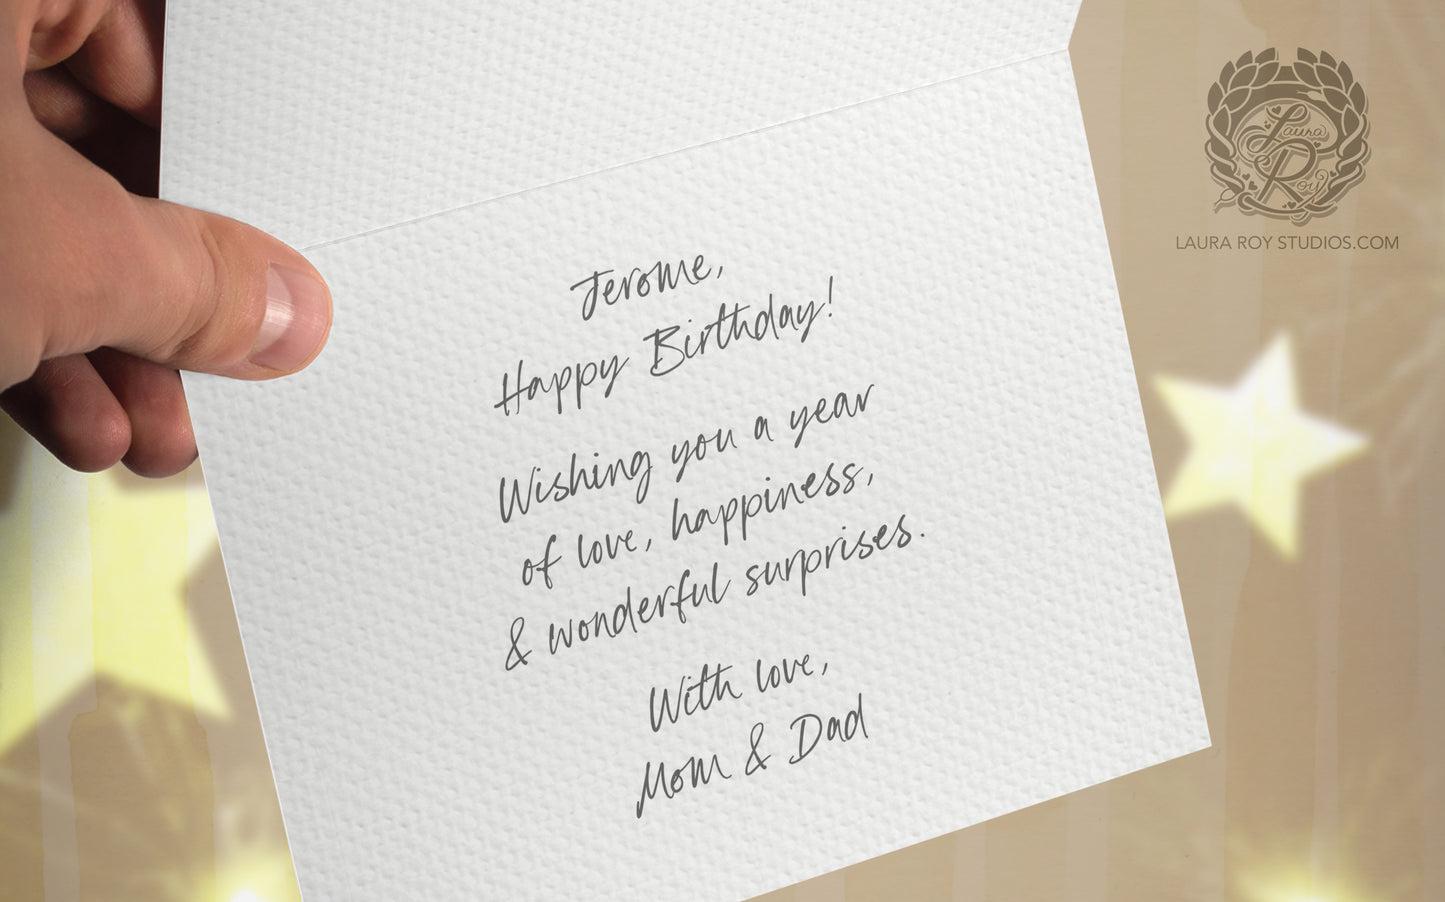 Jerome,
Happy Birthday!
Wishing you a year
of love, happiness,
& wonderful surprises.
With love,
Mom & Dad
Laura
Roy
LAURA ROY STUDIOS.COM